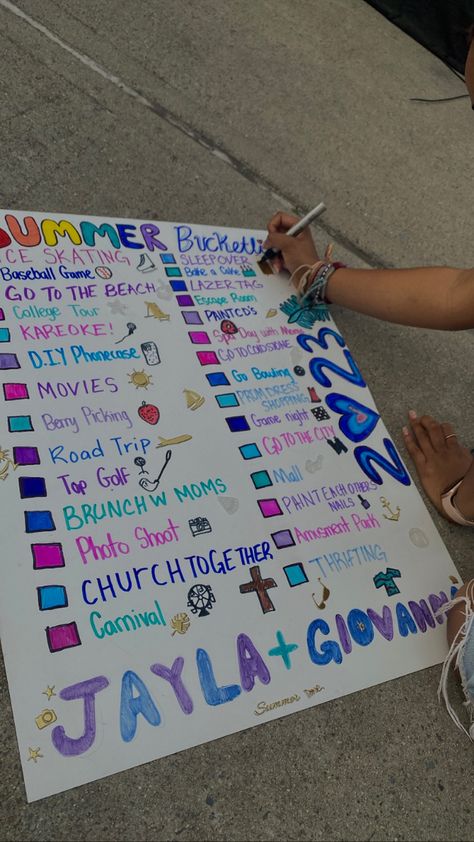 SUMMER Bucketli
ICE SKATING
Baseball Game
GO TO THE BEACH
College Tour
KAREOKE!
D.I.Y Phonecase
MOVIES
Berry Picking
Road Trip
Top Golf
BRUNCH W MOMS
Photo Shoot
CHURCH TOGETHER
Carnival
SLEEPOVER
Bake a Cake
LAZER TAG
Escape Room
PAINT CD'S
Spa Day with Moms
GO TO COLDSTONE
Go Bowling
PROM DRESS SHOPPING
Game night
GO TO THE CITY
Mall
PAINT EACH OTHERS
NAILS
Amusment Park
THRIFTING
2023
JAYLA + GIOVANNA
Summer